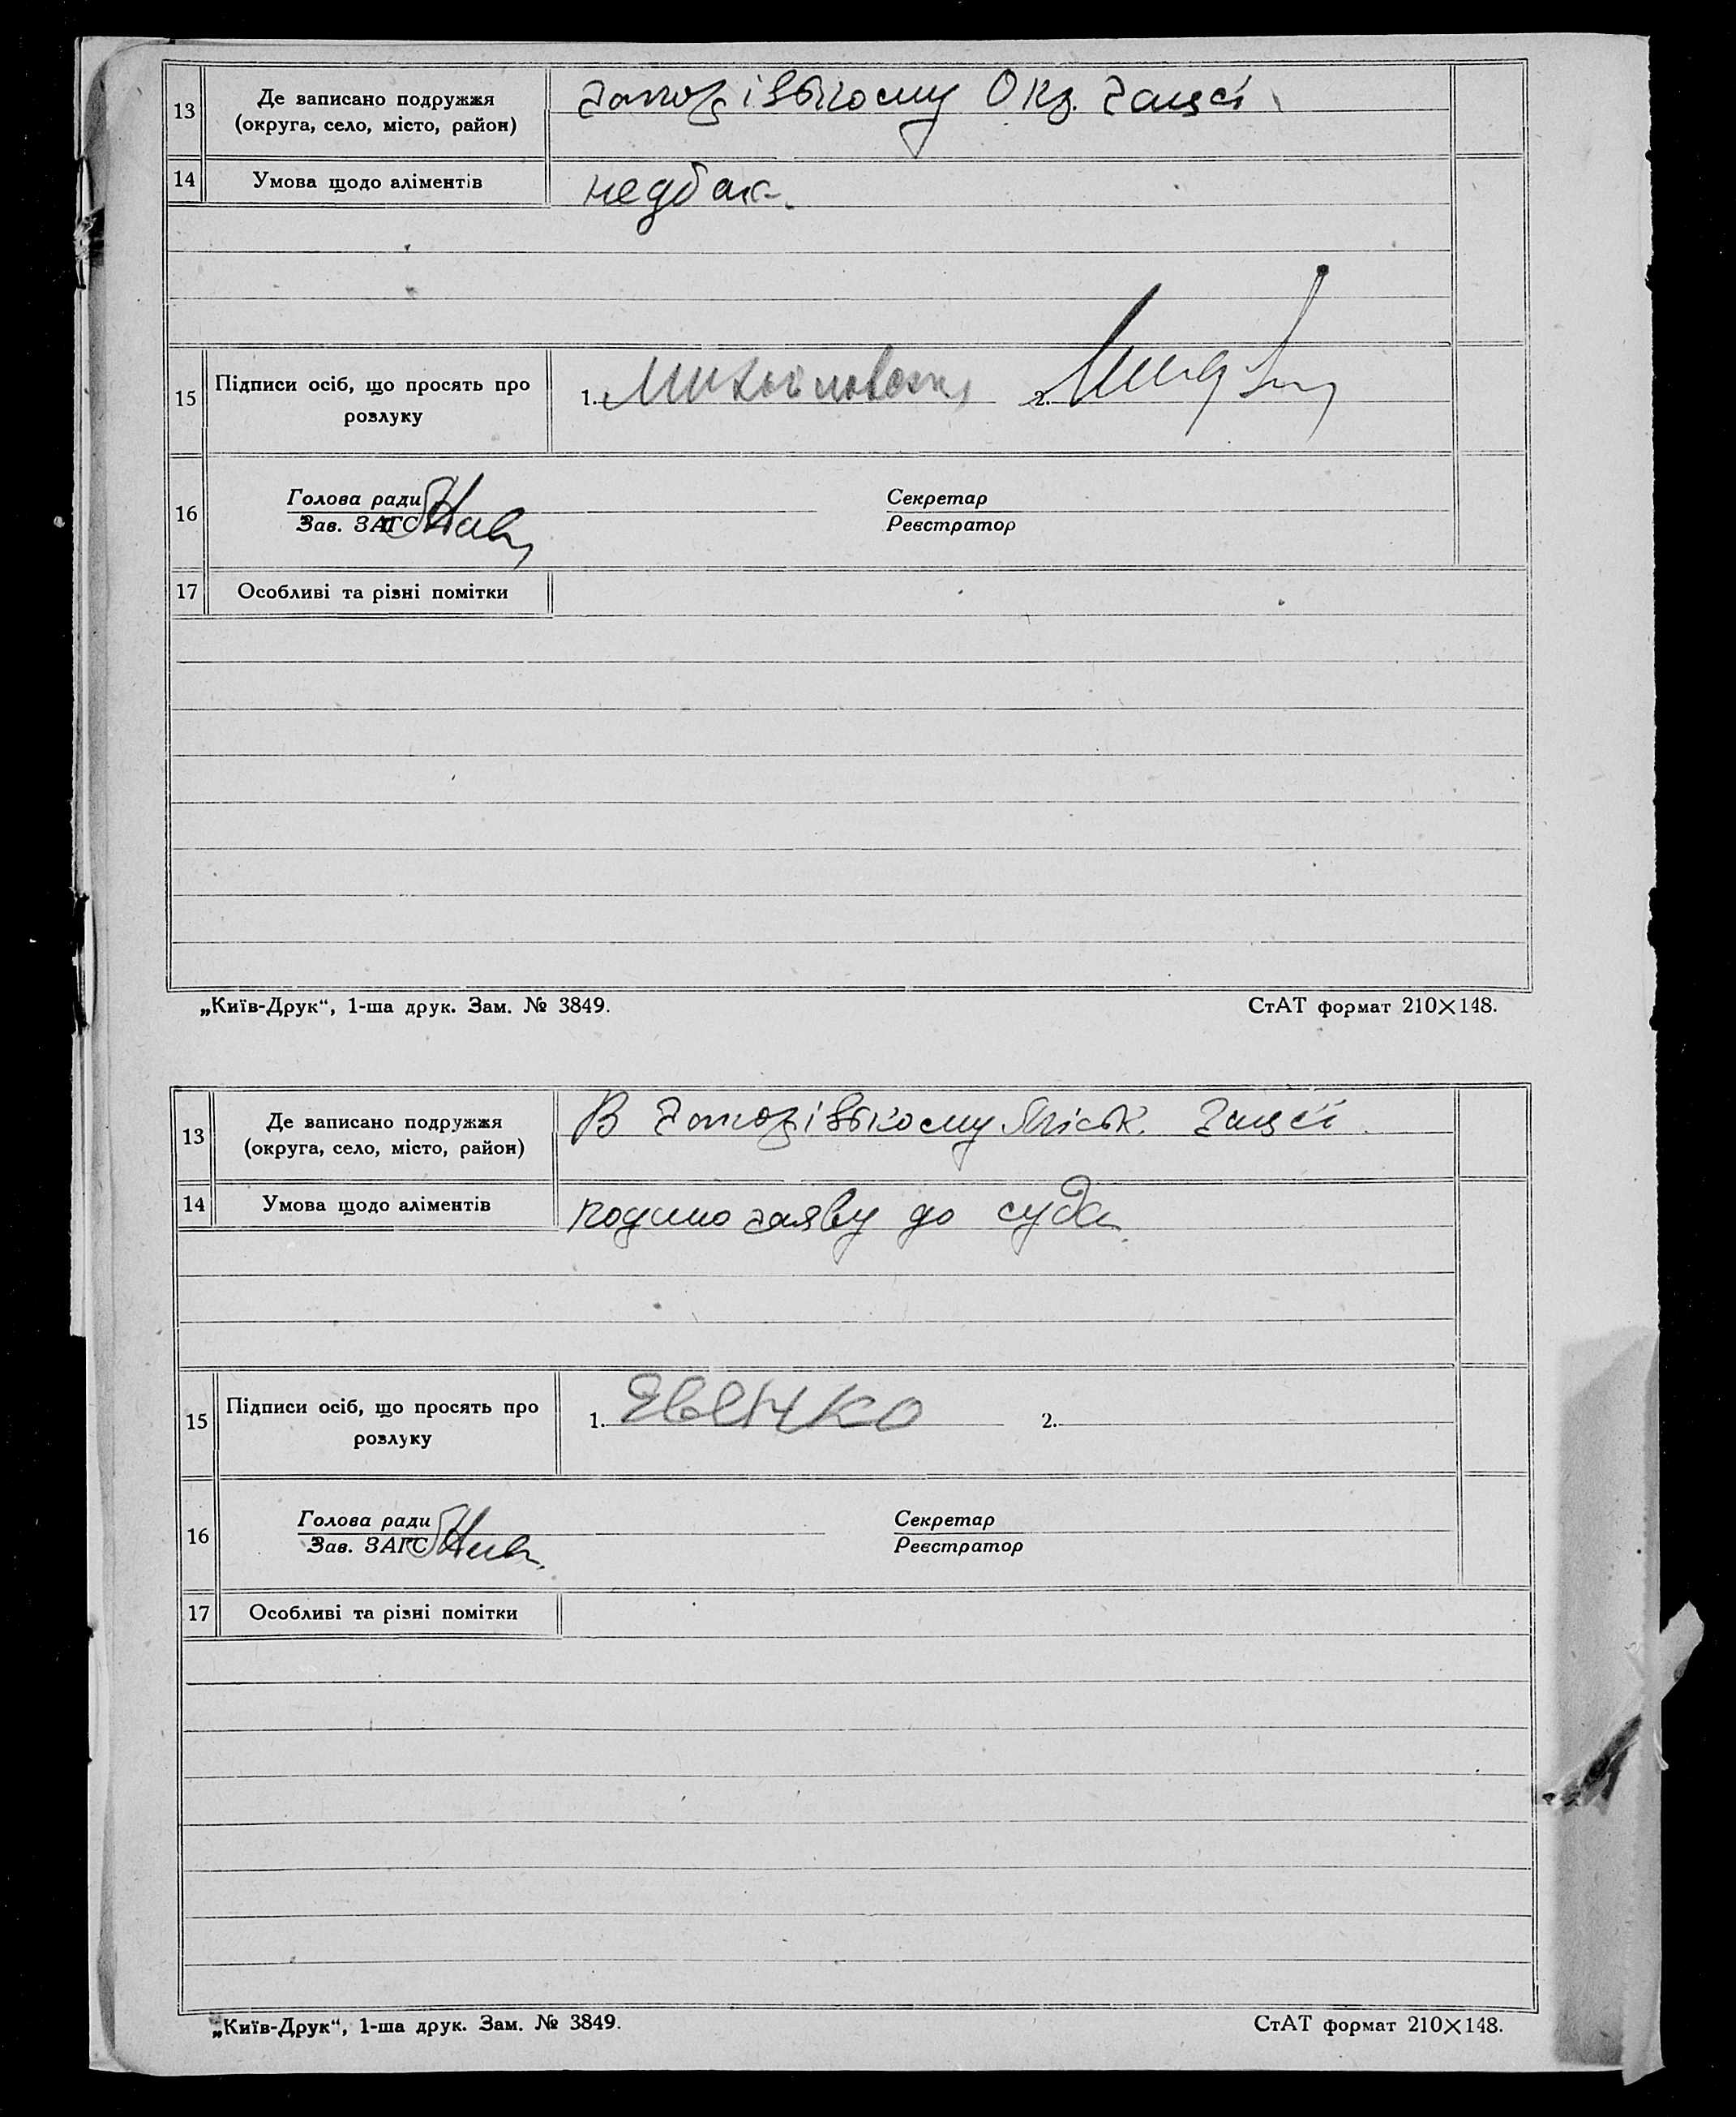 13
Де записано подружжя
(округа, село, місто, район)
Окр. Загсі
14
Умова щодо аліментів
15
Підписи осіб, що просять про
розлуку
1.
2.
16
Голова ради
Зав. ЗАГС
Секретар
Реєстратор
17
Особливі та різні помітки
„Київ-Друк“, 1-ша друк. Зам. № 3849.
СтАТ формат 210×148.
13
Де записано подружжя
(округа, село, місто, район)
В Міськ. Загсі
14
Умова щодо аліментів
подано заяву до суда
15
Підписи осіб, що просять про
розлуку
1.
2.
16
Голова ради
Зав. ЗАГС
Секретар
Реєстратор
17
Особливі та різні помітки
„Київ-Друк“, 1-ша друк. Зам. № 3849.
СтАТ формат 210×148.